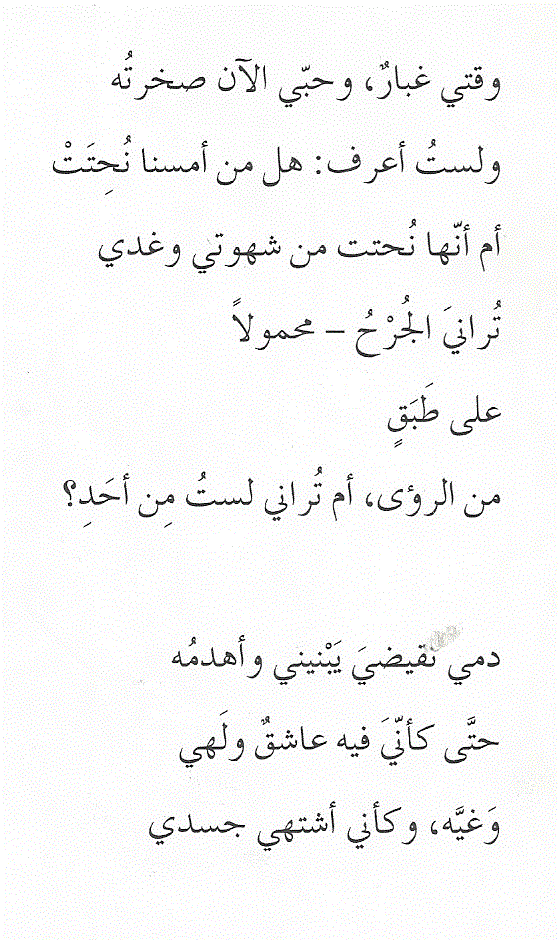 وقتي غبارٌ، وحبّي الآن صخرتُه
ولستُ أعرف: هل من أمسنا نُحِتَتْ
أم أنّها نُحتت من شهوتي وغدي
تُرانيَ الجُرْحُ – محمولاً
على طَبَقٍ
من الرؤى، أم تُراني لستُ مِن أحَدِ؟
دمي نقيضيَ يَبْنيني وأهدمُه
حتَّى كأنّيَ فيه عاشقٌ ولَهي
وَغيَّه، وكأني أشتهي جسدي